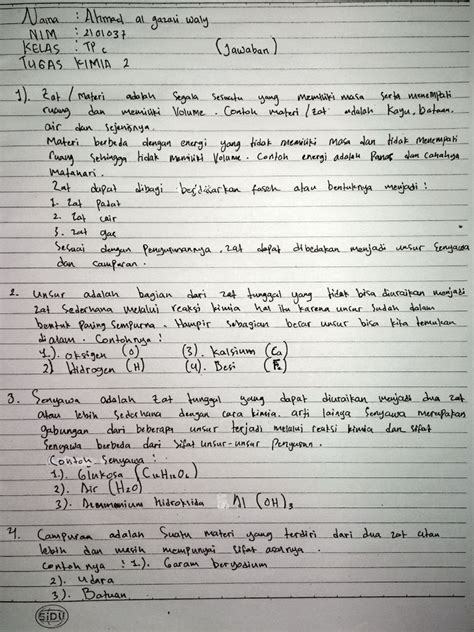 Nama : Ahmad al gazali waly
NIM : 2101037
KELAS : TP c (Jawaban)
TUGAS KIMIA 2
1). Zat / Materi adalah segala sesuatu yang memiliki masa serta menempati
ruang dan memiliki Volume. Contoh materi / zat adalah Kayu, batuan,
air dan sejenisnya.
Materi berbeda dengan energi yang tidak memiliki masa dan tidak menempati
ruang sehingga tidak memiliki Volume. Contoh energi adalah Panas dan cahaya
Matahari.
Zat dapat dibagi berdasarkan faseh atau bentuknya menjadi :
1. Zat padat
2. Zat cair
3. zat gas
Sesuai dengan Penyusunannya, zat dapat dibedakan menjadi unsur senyawa
dan campuran.
2. Unsur adalah bagian dari zat tunggal yang tidak bisa diuraikan menjadi
zat Sederhana melalui reaksi kimia hal itu karena unsur sudah dalam
bentuk paling sempurna. Hampir sebagian besar unsur bisa kita temukan
di alam. Contohnya :
1.). oksigen (O) (3). Kalsium (Ca)
2) Hidrogen (H) (4). Besi (Fe)
3. Senyawa adalah zat tunggal yang dapat diuraikan menjadi dua zat
atau lebih sederhana dengan cara kimia. arti lainya Senyawa merupakan
gabungan dari beberapa unsur terjadi melalui reaksi kimia dan sifat
Senyawa berbeda dari sifat unsur-unsur Penyusun.
Contoh Senyawa :
1.). Glukosa (C6H12O6)
2). Air (H2O)
3). Alumunium Hidroksida Al (OH)3
4. Campuran adalah Suatu materi yang terdiri dari dua zat atau
lebih dan masih mempunyai sifat asalnya.
contoh nya : 1.). Garam beryodium
2). udara
3). Batuan
SIDU